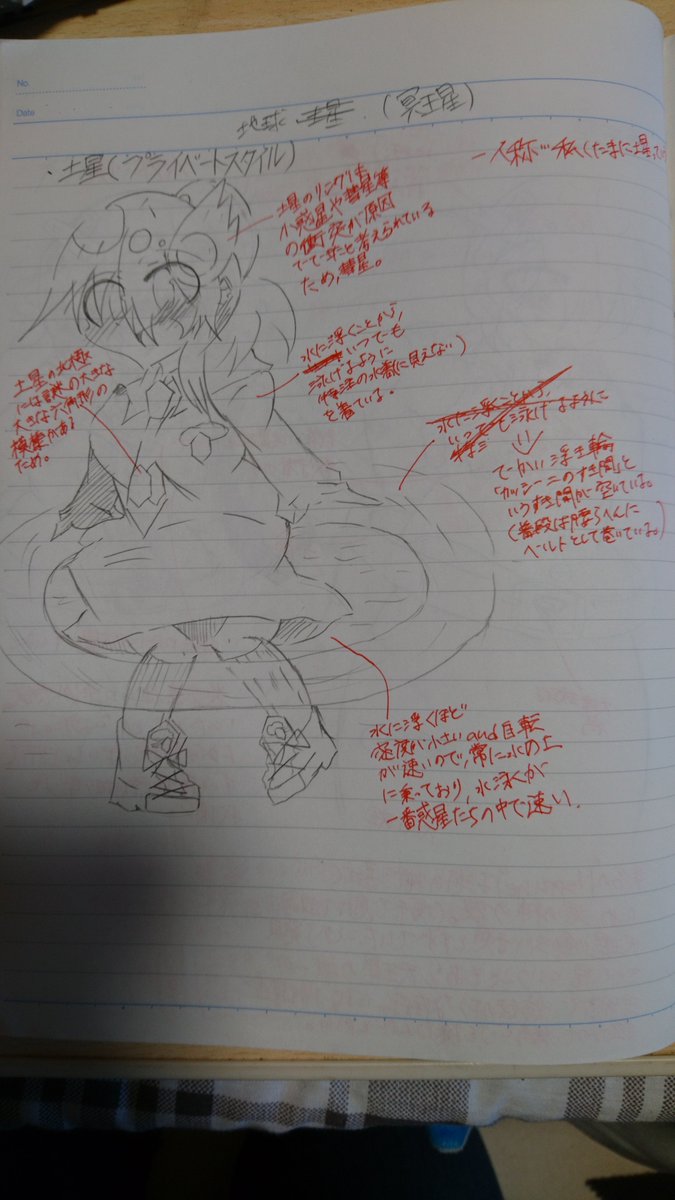 No.
Date
地球、土星、(冥王星)
・土星(プライベートスタイル)
一人称…私(たまに土星って
土星のリングは
小惑星や彗星等
の衝突が原因
でできたと考えられている
ため、彗星。
水に浮くことから、
いつでも
泳げるように
特注の水着(に見えない)
を着ている。
土星の北極
には謎の大きな
大きな六角形の
模様がある
ため。
水に浮くことから、
いつでも泳げるように
↓
でーかい浮き輪
「カッシーニのすき間」と
いうすき間が空いている。
(普段は腰らへんに
ベルトとして巻いている。)
水に浮くほど
密度が小さいand自転
が速いので、常に水の上
に乗っており、水泳が
一番惑星たちの中で速い.